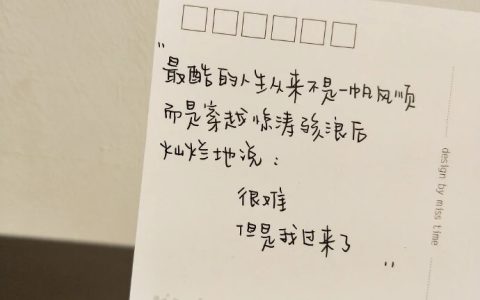 "
最酷的人生从来不是一帆风顺
而是穿越惊涛骇浪后
灿烂地说：
很难
但是我过来了
"
design by miss time